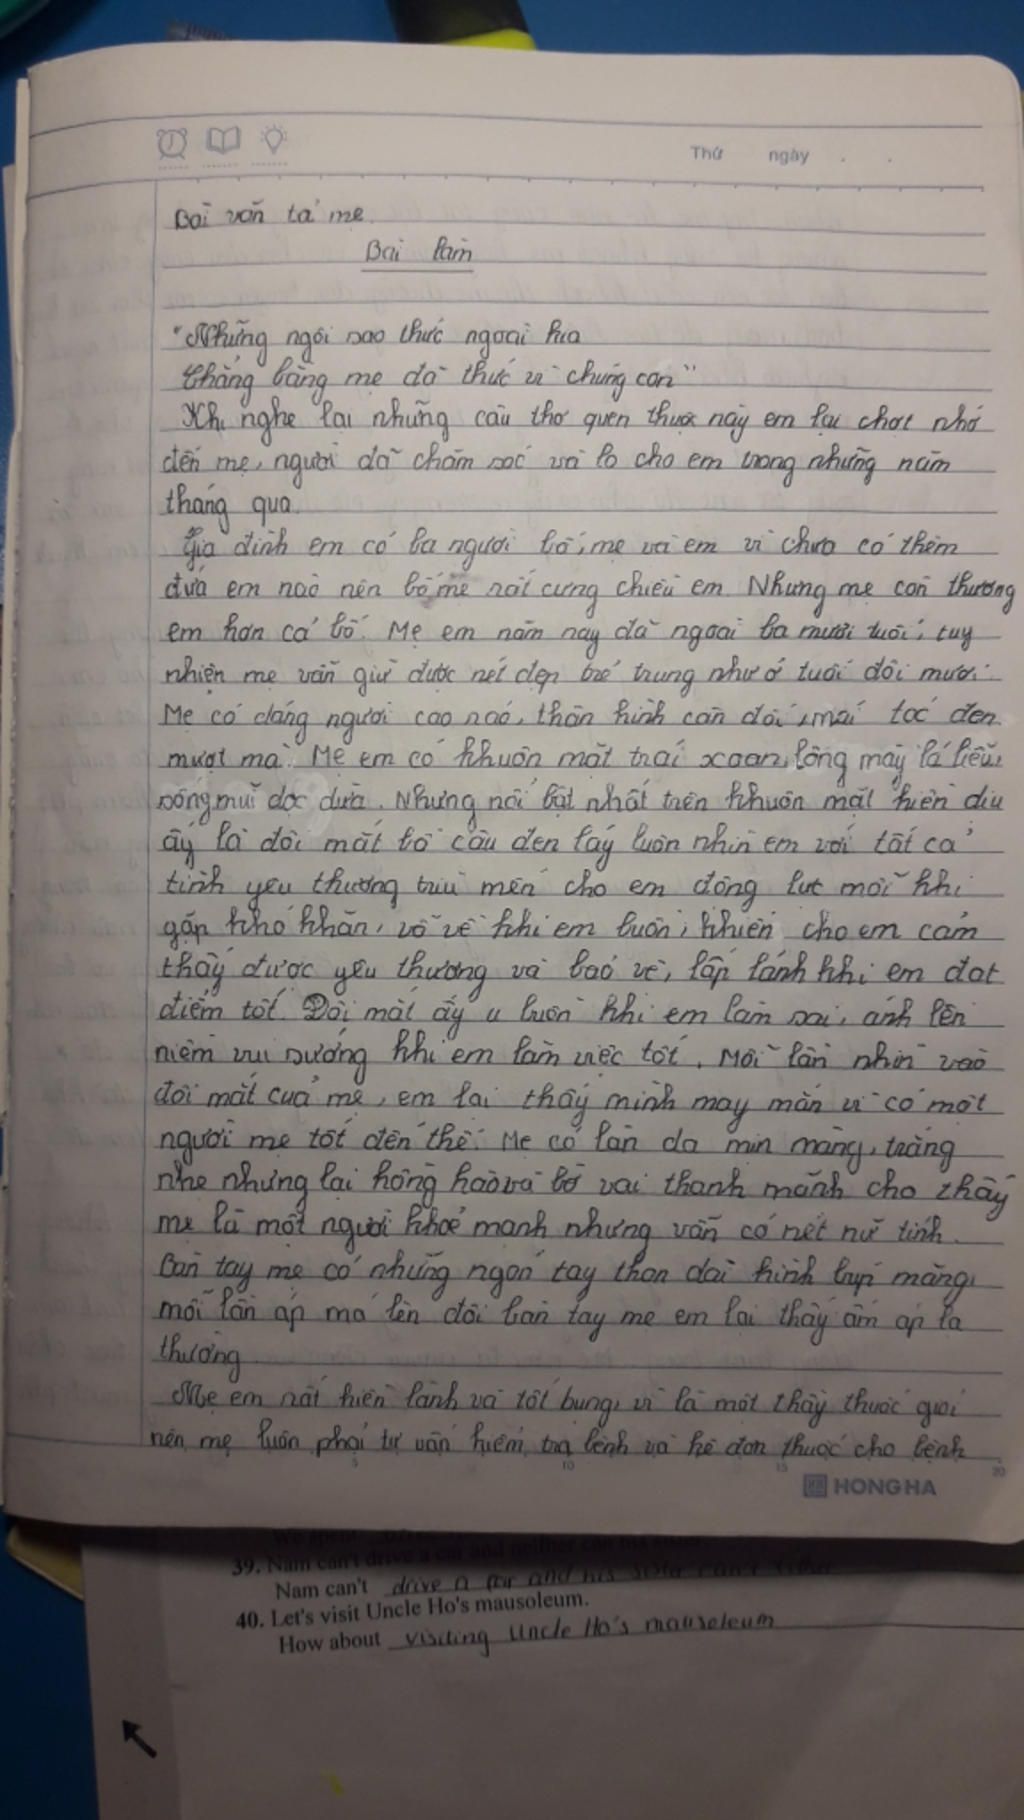 Thứ ngày . .
Bài văn tả mẹ.
Bài làm
"Những ngôi sao thức ngoài kia
Chẳng bằng mẹ đã thức vì chúng con"
Khi nghe lại những câu thơ quen thuộc này em lại chợt nhớ
đến mẹ, người đã chăm sóc và lo cho em trong những năm
tháng qua.
Gia đình em có ba người bố, mẹ và em vì chưa có thêm
đứa em nào nên bố mẹ rất cưng chiều em. Nhưng mẹ còn thương
em hơn cả bố. Mẹ em năm nay đã ngoài ba mươi tuổi, tuy
nhiên mẹ vẫn giữ được nét đẹp trẻ trung như ở tuổi đôi mươi.
Mẹ có dáng người cao ráo, thân hình cân đối, mái tóc đen
mượt mà. Mẹ em có khuôn mặt trái xoan, lông mày lá liễu,
sống mũi dọc dừa. Nhưng nổi bật nhất trên khuôn mặt hiền dịu
ấy là đôi mắt bồ câu đen láy luôn nhìn em với tất cả
tình yêu thương trìu mến cho em động lực mỗi khi
gặp khó khăn, vỗ về khi em buồn, khiến cho em cảm
thấy được yêu thương và bảo vệ, lấp lánh khi em đạt
điểm tốt. Đôi mắt ấy u buồn khi em làm sai, ánh lên
niềm vui sướng khi em làm việc tốt. Mỗi lần nhìn vào
đôi mắt của mẹ, em lại thấy mình may mắn vì có một
người mẹ tốt đến thế. Mẹ có làn da mịn màng, trắng
nhẹ nhưng lại hồng hào và bờ vai thanh mảnh cho thấy
mẹ là một người khoẻ mạnh nhưng vẫn có nét nữ tính.
Bàn tay mẹ có những ngón tay thon dài hình búp măng,
mỗi lần áp má lên đôi bàn tay mẹ em lại thấy ấm áp lạ
thường
Mẹ em rất hiền lành và tốt bụng, vì là một thầy thuốc giỏi
nên mẹ luôn phải tự vấn hiểm, tra bệnh và kê đơn thuốc cho bệnh
5 10 15 20
HONG HA
39. Nam can't drive a car and neither can his sister.
Nam can't drive a car and his sister can't either
40. Let's visit Uncle Ho's mausoleum.
How about visiting Uncle Ho's mausoleum